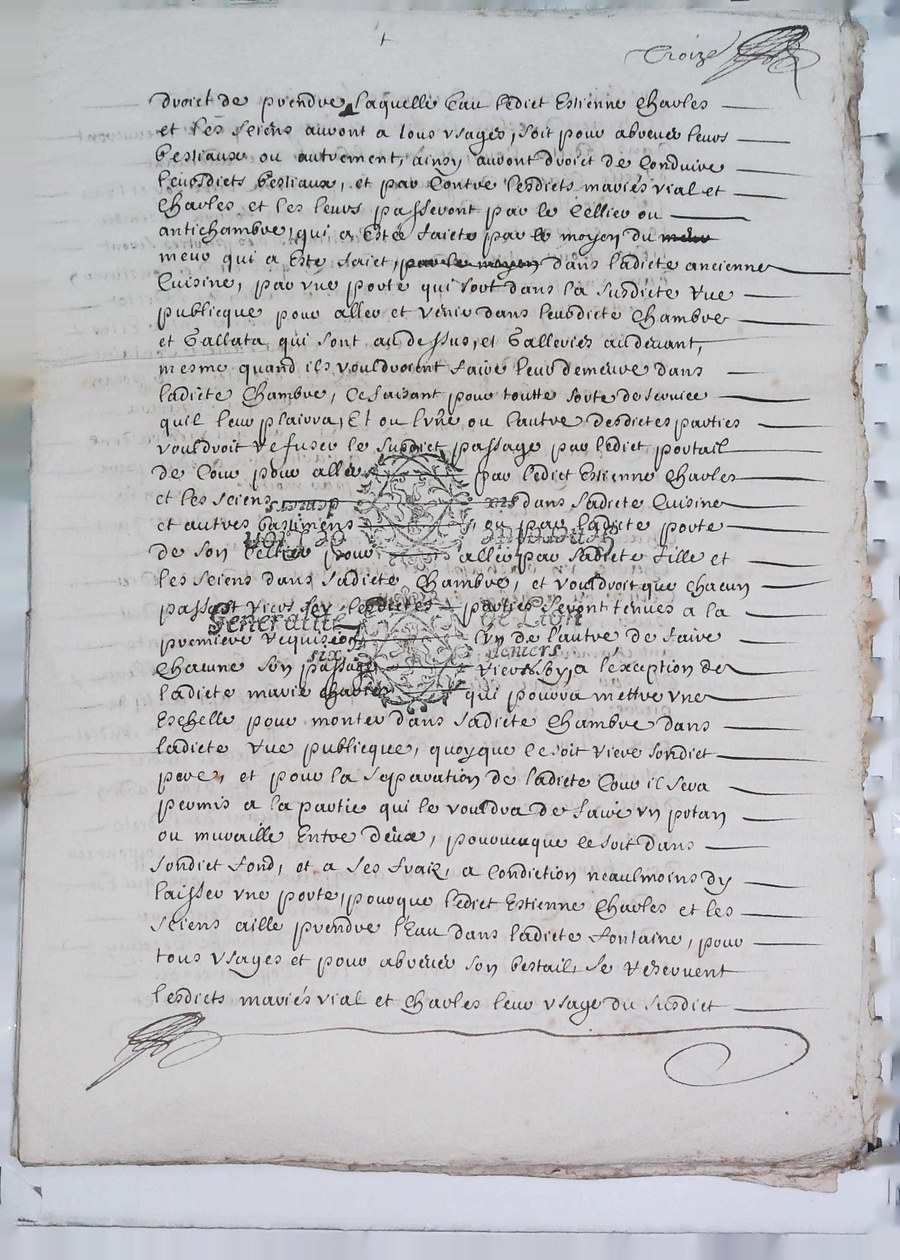 Troize
droict de prendre laquelle Eau ledict Estienne Charles
et les seiens auront a tous vsages, soit pour abreuer leurs
bestiaux ou autrement, ainsy auront droict de Conduire
leursdicts bestiaux, et par Contre lesdicts mariés vial et
Charles et les leurs passeront par le Cellier ou
antichambre, qui a Esté faicte par le moyen du meur
meur qui a Esté faict, par le moyen dans ladicte ancienne
Cuisine, par vne porte qui sort dans la susdicte rue
publicque pour aller et venir dans leursdicte Chambre
et Gallata qui sont au dessus, et Galleries au deuant,
mesme quand ils vouldroient faire leur demeure dans
ladicte Chambre, Ce faisant pour toutte sorte de seruice
quil leur plairra, Et ou lvne ou lautre desdictes parties
vouldroit refuser le susdict passage par ledict portail
de Cour pour aller par ledict Estienne Charles
et les seiens dans sadicte Cuisine
et autres bastimens ou par ladicte porte
de son Cellier pour aller par sadicte fille et
les seiens dans sadicte Chambre, et vouldroit que chacun
passast riere soy, lesdictes parties seront tenues a la
Generalite de Lion
premiere requisi͠on lvn de l'autre de faire
six deniers
Chacune son passage riere soy, a l'exception de
ladicte marie charles qui pourra mettre vne
Eschelle pour monter dans sadicte Chambre dans
ladicte rue publicque, quoyque ce soit riere sondict
pere, et pour la separation de ladicte Cour il sera
permis a la partie qui le vouldra de faire vn
ou muraille Entre deux, pourueuque ce soit dans
sondict fond, et a ses fraiz, a Condiction neaulmoins dy
laisser vne porte, pouoque ledict Estienne Charles et les
seiens aille prendre l'Eau dans ladicte fontaine, pour
tous vsages et pour abreuer son bestail, se reseruent
lesdicts mariés vial et Charles leur vsage du susdict